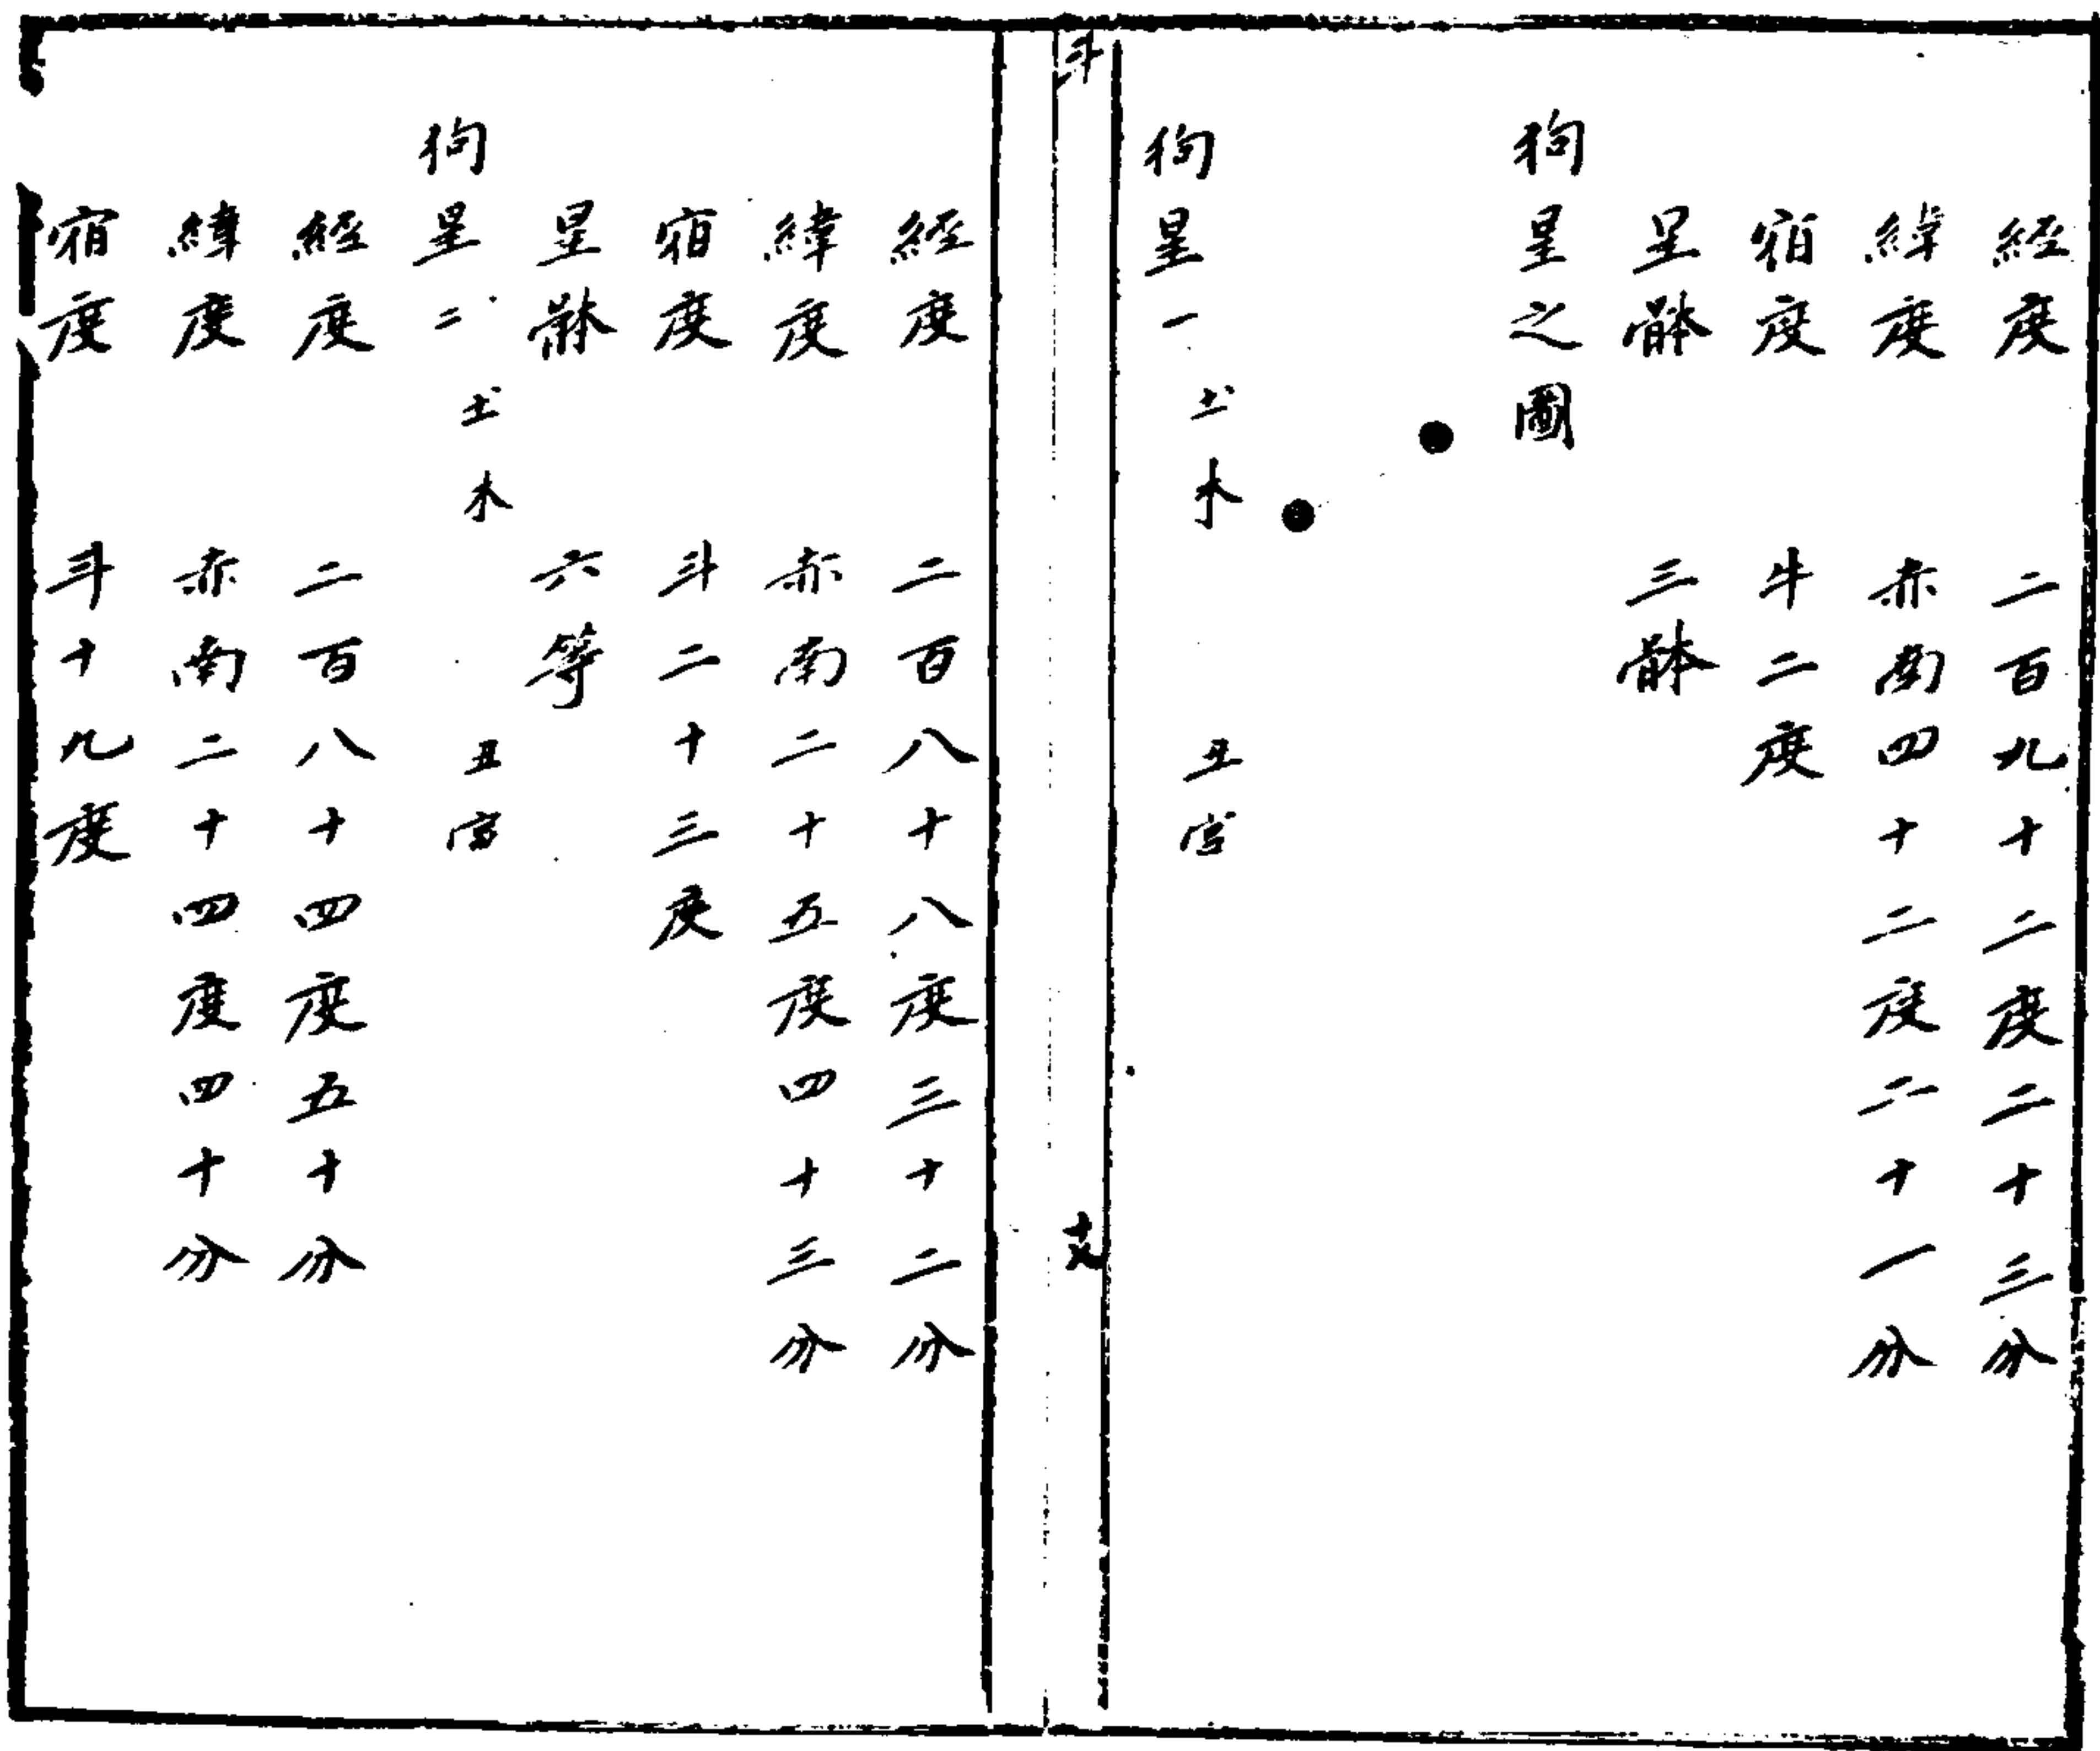 經度　二百九十二度二十三分
緯度　赤南四十二度二十一分
宿度　牛二度
星體　三體
狗星之圖
狗星一　土木　丑宮
斗
經度　二百八十八度三十二分
緯度　赤南二十五度四十三分
宿度　斗二十三度
星體　六等
狗星二　土木　丑宮
經度　二百八十四度五十分
緯度　赤南二十四度四十分
宿度　斗十九度